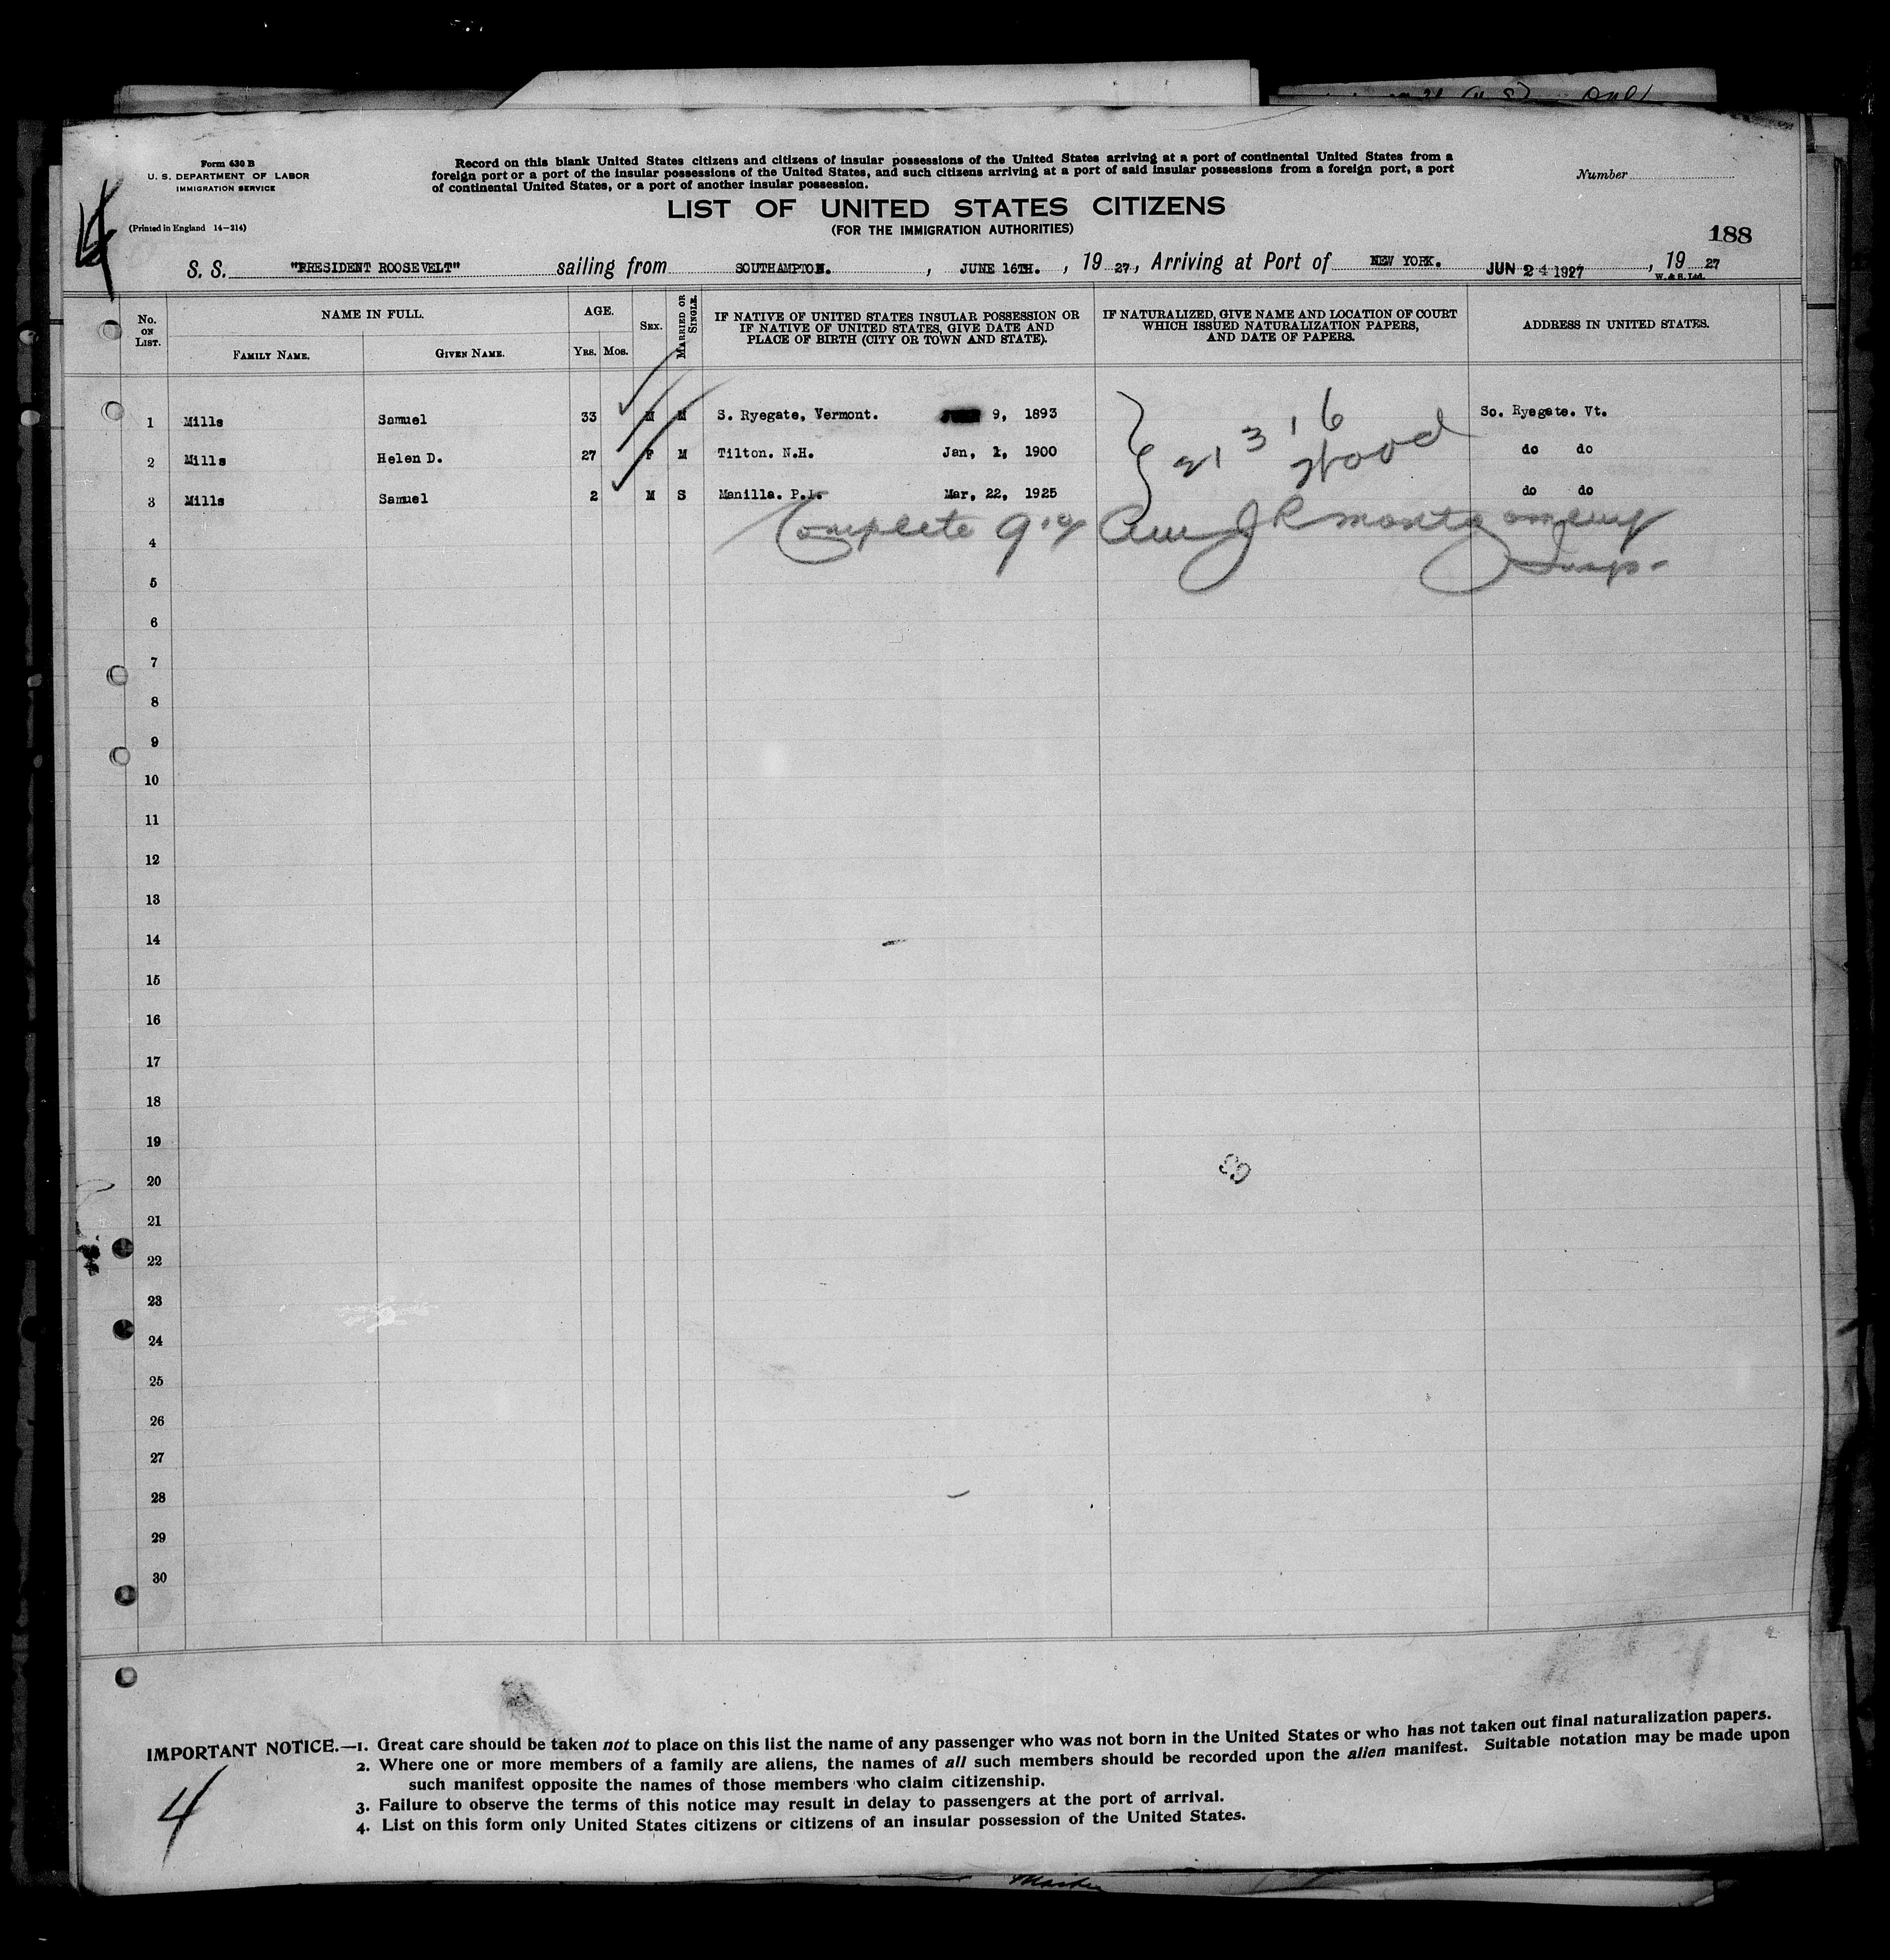 Form 630 B
U. S. DEPARTMENT OF LABOR
IMMIGRATION SERVICE
(Printed in England 14—214)
Record on this blank United States citizens and citizens of insular possessions of the United States arriving at a port of continental United States from a
foreign port or a port of the insular possessions of the United States, and such citizens arriving at a port of said insular possessions from a foreign port, a port
of continental United States, or a port of another insular possession.
Number
LIST OF UNITED STATES CITIZENS
(FOR THE IMMIGRATION AUTHORITIES)
188
S. S. "PRESIDENT ROOSEVELT" sailing from SOUTHAMPTON. , JUNE 16TH. , 19 27, Arriving at Port of NEW YORK. JUN 24 1927 , 19 27
W. & S. Ltd.
No. ON LIST.
NAME IN FULL.
FAMILY NAME.
GIVEN NAME.
AGE.
YRS. MOS.
SEX.
MARRIED OR SINGLE.
IF NATIVE OF UNITED STATES INSULAR POSSESSION OR
IF NATIVE OF UNITED STATES, GIVE DATE AND
PLACE OF BIRTH (CITY OR TOWN AND STATE).
IF NATURALIZED, GIVE NAME AND LOCATION OF COURT
WHICH ISSUED NATURALIZATION PAPERS,
AND DATE OF PAPERS.
ADDRESS IN UNITED STATES.
1 Mills Samuel 33 M M S. Ryegate, Vermont. 9, 1893 So. Ryegate. Vt.
2 Mills Helen D. 27 F M Tilton. N.H. Jan, 1, 1900 do do
3 Mills Samuel 2 M S Manilla. P.I. Mar, 22, 1925 do do
4 Complete J R Montgomery
Insp.
5
6
7
8
9
10
11
12
13
14
15
16
17
18
19
20
21
22
23
24
25
26
27
28
29
30
IMPORTANT NOTICE.—1. Great care should be taken not to place on this list the name of any passenger who was not born in the United States or who has not taken out final naturalization papers.
2. Where one or more members of a family are aliens, the names of all such members should be recorded upon the alien manifest. Suitable notation may be made upon
such manifest opposite the names of those members who claim citizenship.
3. Failure to observe the terms of this notice may result in delay to passengers at the port of arrival.
4. List on this form only United States citizens or citizens of an insular possession of the United States.
4